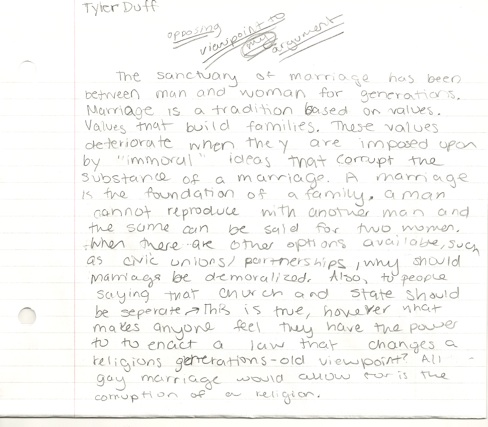 Tyler Duff
opposing
viewpoint to
my argument
The sanctuary of marriage has been
between man and woman for generations.
Marriage is a tradition based on values.
Values that build families. These values
deteriorate when they are imposed upon
by "immoral" ideas that corrupt the
substance of a marriage. A marriage
is the foundation of a family, a man
cannot reproduce with another man and
the same can be said for two women.
When there are other options available, such
as civic unions/partnerships, why should
marriage be demoralized. Also, to people
saying that church and state should
be seperate → This is true, however what
makes anyone feel they have the power
to to enact a law that changes a
religions generations-old viewpoint? All
gay marriage would allow for is the
corruption of a religion.